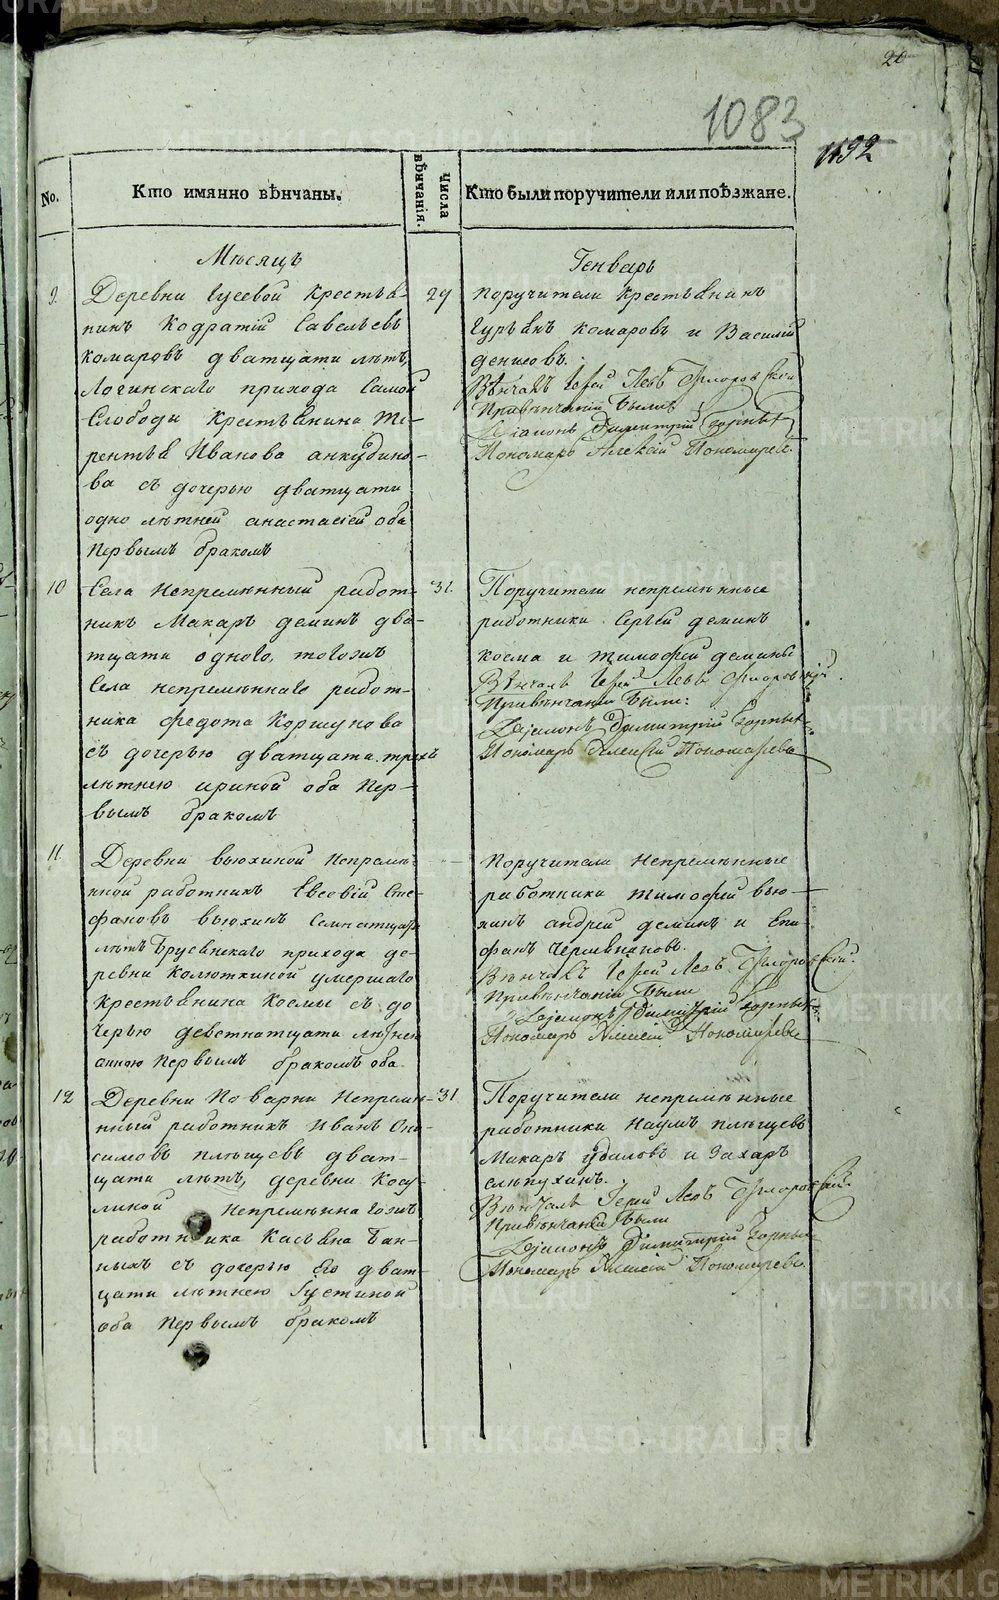 20
1083
1192
No.
Кто имянно вѣнчаны.
Числа вѣнчанія.
Кто были поручители или поѣзжане.
Мѣсяцъ
Генварь
9.
Деревни Гусевой крестья-
нинъ Кодратій Савельевъ
комаровъ дватцати лѣтъ,
Логинскаго прихода Самой
Слободы крестьянина Те-
рентья Иванова анкудино-
ва съ дочерью дватцати
одно лѣтней анастасіей оба
первымъ бракомъ
29
поручители крестьянинъ
Гурьянъ комаровъ и Василій
денисовъ.
Вѣнчалъ Іерей Левъ Флоровскій
При вѣнчаніи были
Діаконъ Димитрій Горныхъ
Пономарь Алексей Пономаревъ
10
Села Непремѣнный работ-
никъ Макаръ деминъ два-
тцати одного, тогожъ
Села непремѣннаго работ-
ника федота Коршунова
съ дочерью дватцати трехъ
лѣтнею ириной оба пер-
вымъ бракомъ
31.
Поручители непремѣнные
работники Сергѣй деминъ
косма и тимофей демины
Вѣнчалъ Іерей Левъ Флоровскій.
При вѣнчаніи были:
Діаконъ Димитрій Горныхъ
Пономарь Алексей Пономаревъ
11
Деревни вьюхиной Непремѣ-
нной работникъ Евсевій Сте-
фановъ вьюхинъ Семнатцати
лѣтъ Бруснскаго прихода де-
ревни Колюткиной умершаго
крестьянина Космы съ до
черью деветнатцати лѣтней
анною первымъ бракомъ оба.
Поручители Непремѣнные
работники тимофей вью-
хинъ андрей деминъ и Епи-
фанъ Черемнаковъ.
Вѣнчалъ Іерей Левъ Флоровскій.
При вѣнчаніи были
Діаконъ Димитрій Горныхъ
Пономарь Алексей Пономаревъ
12
Деревни Поварни Непремѣ-
нный работникъ Иванъ Они-
симовъ плѣщевъ дват-
цати лѣтъ, деревни Косу-
линой Непремѣннагожъ
работника Касьяна Бан-
ныхъ съ дочерью Его дват
цати лѣтнею Густиной
оба первымъ бракомъ
31
Поручители непремѣнные
работники Наумъ плѣщевъ
Макаръ удиловъ и Захаръ
слѣпухинъ.
Вѣнчалъ Іерей Левъ Флоровскій.
При вѣнчаніи были
Діаконъ Димитрій Горныхъ
Пономарь Алексей Пономаревъ.
METRIKI.GASO-URAL.RU